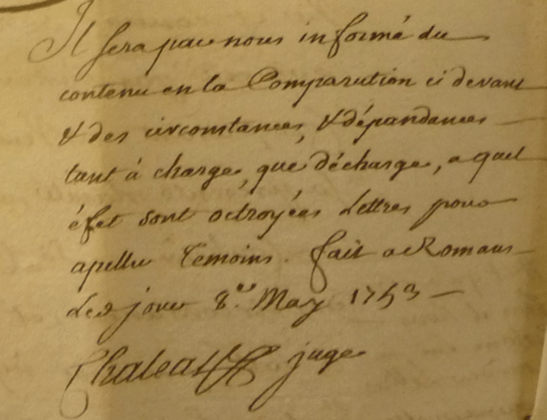 Il sera par nous informé du
contenu en la Comparution ci devant
& des circonstances, & dépandances
tant à charge, que décharge, a quel
éfet sont octroyées Lettres pour
apeller Temoins. fait a Romans
Led jour 8e. May 1753
juge